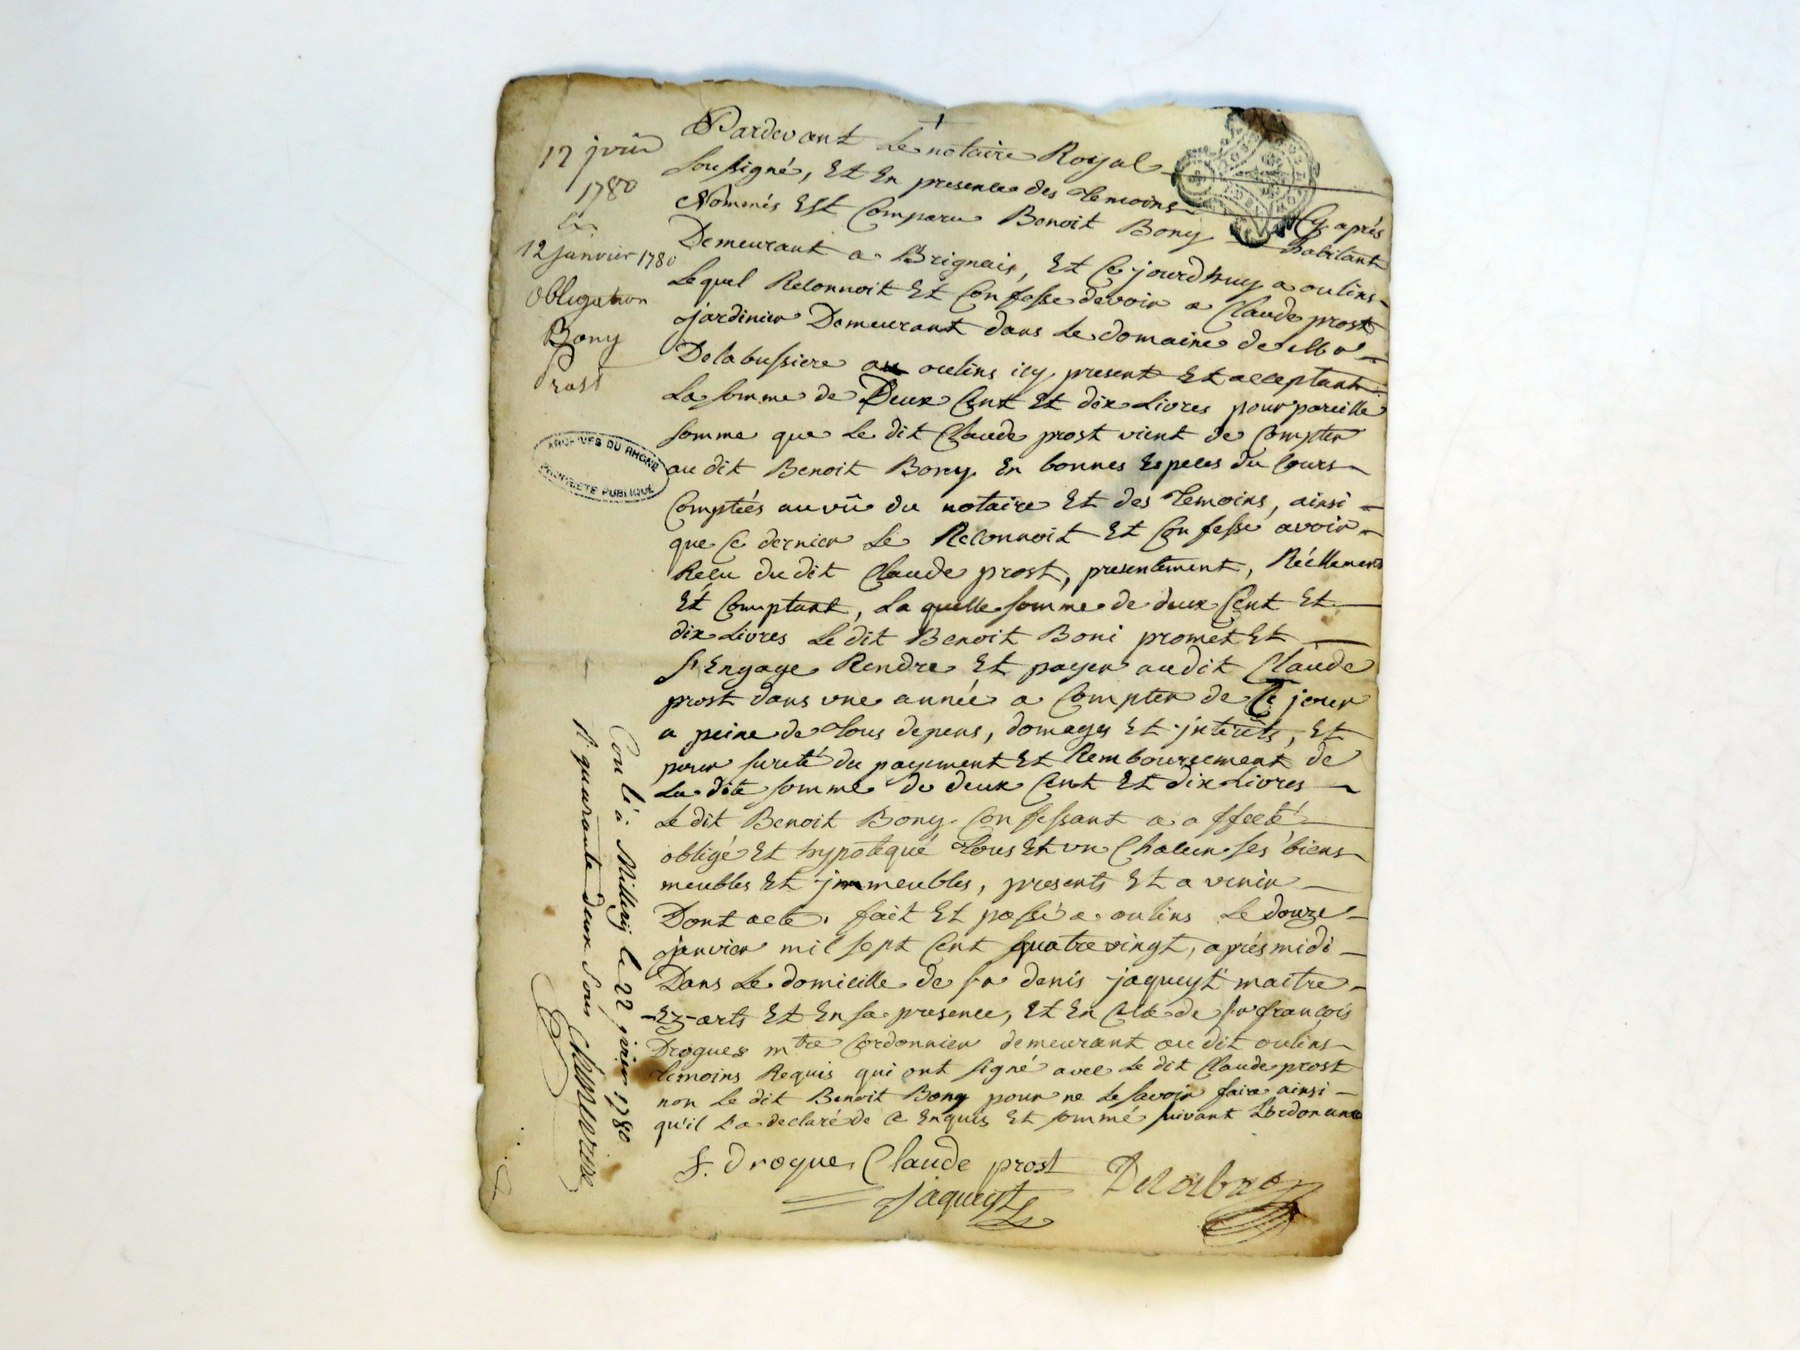 12 jvier
1780
12 janvier 1780
obligation
Bony
Prost
ARCHIVES DU RHONE
PROPRIETE PUBLIQUE
Pardevant Le notaire Royal
soussigné, Et En presence des temoins Cy aprés
Nommés Est Comparu Benoit Bony habitant
Demeurant a Brignais, Et Ce jourdhuy a oulins
Lequel Reconnoit Et Confesse devoir a Claude prost
jardinier Demeurant dans Le domaine de Mr
Delabussiere au oulins icy present Et acceptant
La somme de Deux Cent Et dix Livres pour pareille
somme que Le dit Claude prost vient de Compter
au dit Benoit Bony En bonnes Especes du Cours
Comptées au vû du notaire Et des temoins, ainsi
que Ce dernier Le Reconnoit Et Confesse avoir
Recu du dit Claude prost, presentement, Réellement
Et Comptant, La quelle somme de deux Cent Et
dix Livres Le dit Benoit Boni promet Et
s'Engage Rendre Et payer au dit Claude
prost dans une année a Compter de Ce jour
a peine de tous depens, domages Et interêts, Et
pour sureté du payement Et Remboursement de
La dite somme de deux Cent Et dix Livres
Le dit Benoit Bony Confessant a affecté
obligé Et hypotequé tous Et un Chacun ses biens
meubles Et immeubles, presents Et a venir
Dont acte, fait Et passé a oulins Le douze
janvier mil sept Cent quatre vingt, aprés midi
Dans Le domicille de sr denis jaqueyt maitre
Ez-arts Et En sa presence, Et En Celle de sr françois
Drogue mtre Cordonnier demeurant au dit oulins
temoins Requis qui ont signé avec Le dit Claude prost
non Le dit Benoit Bony pour ne Le savoir faire ainsi
qu'il L'a declaré de Ce Enquis Et sommé suivant Lordonance
f. Drogue Claude prost
jaqueyt
Conlé à Millery le 22 jvier 1780
R quarante deux sous